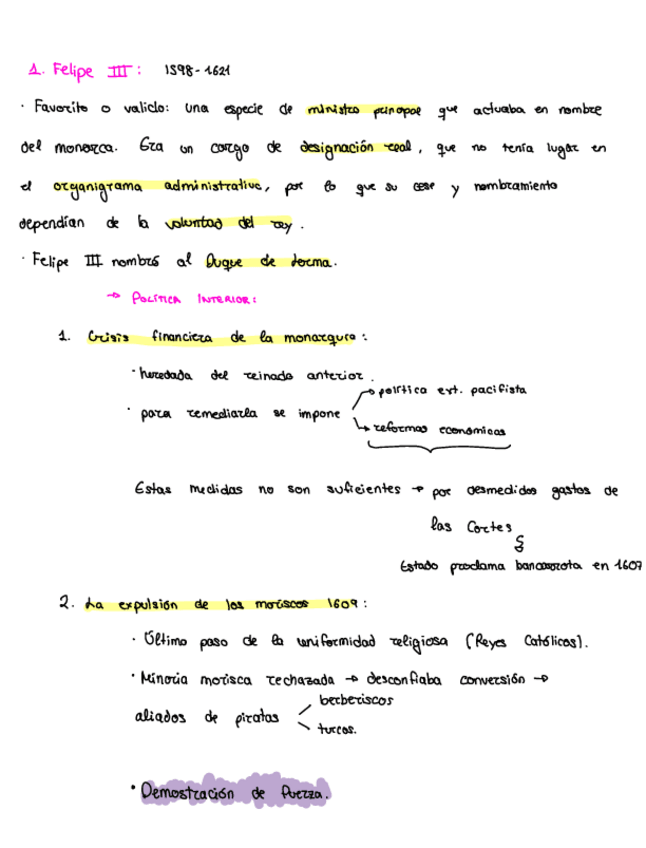 1. Felipe III: 1598-1621
· Favorito o valido: una especie de ministro principal que actuaba en nombre
del monarca. Era un cargo de designación real, que no tenía lugar en
el organigrama administrativo, por lo que su cese y nombramiento
dependían de la voluntad del rey.
· Felipe III nombró al Duque de Lerma.
→ POLÍTICA INTERIOR:
1. Crisis financiera de la monarquía:
· heredada del reinado anterior.
→ política ext. pacifista
· para remediarla se impone
→ reformas económicas
Estas medidas no son suficientes → por desmedidos gastos de
las Cortes
Estado proclama bancarrota en 1607
2. La expulsión de los moriscos 1609:
· Último paso de la uniformidad religiosa (Reyes Católicos).
· Minoría morisca rechazada → desconfiaba conversión →
berberiscos
aliados de piratas
turcos.
· Demostración de fuerza.